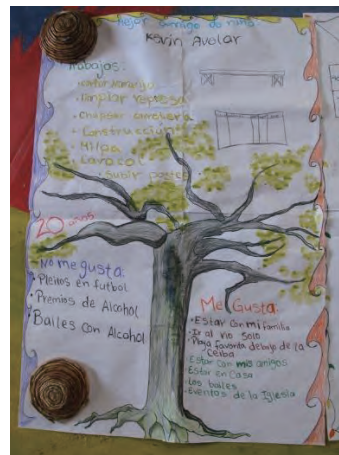 Mejor amigo de niño:
Kevin Avelar
Trabajos:
• cortar naranjo
• Limpiar represa
• Chapear carretera
• Construcción
• Milpa
• Caracol
• Subir postes
20 años
No me gusta:
• Pleitos en futbol
• Premios de Alcohol
• Bailes con Alcohol
Me Gusta:
• Estar con mi familia
• Ir al rio Solo
• Playa favorita debajo de la
Ceiba
Estar con mis amigos
Estar en Casa
Los bailes
• Eventos de la Iglesia